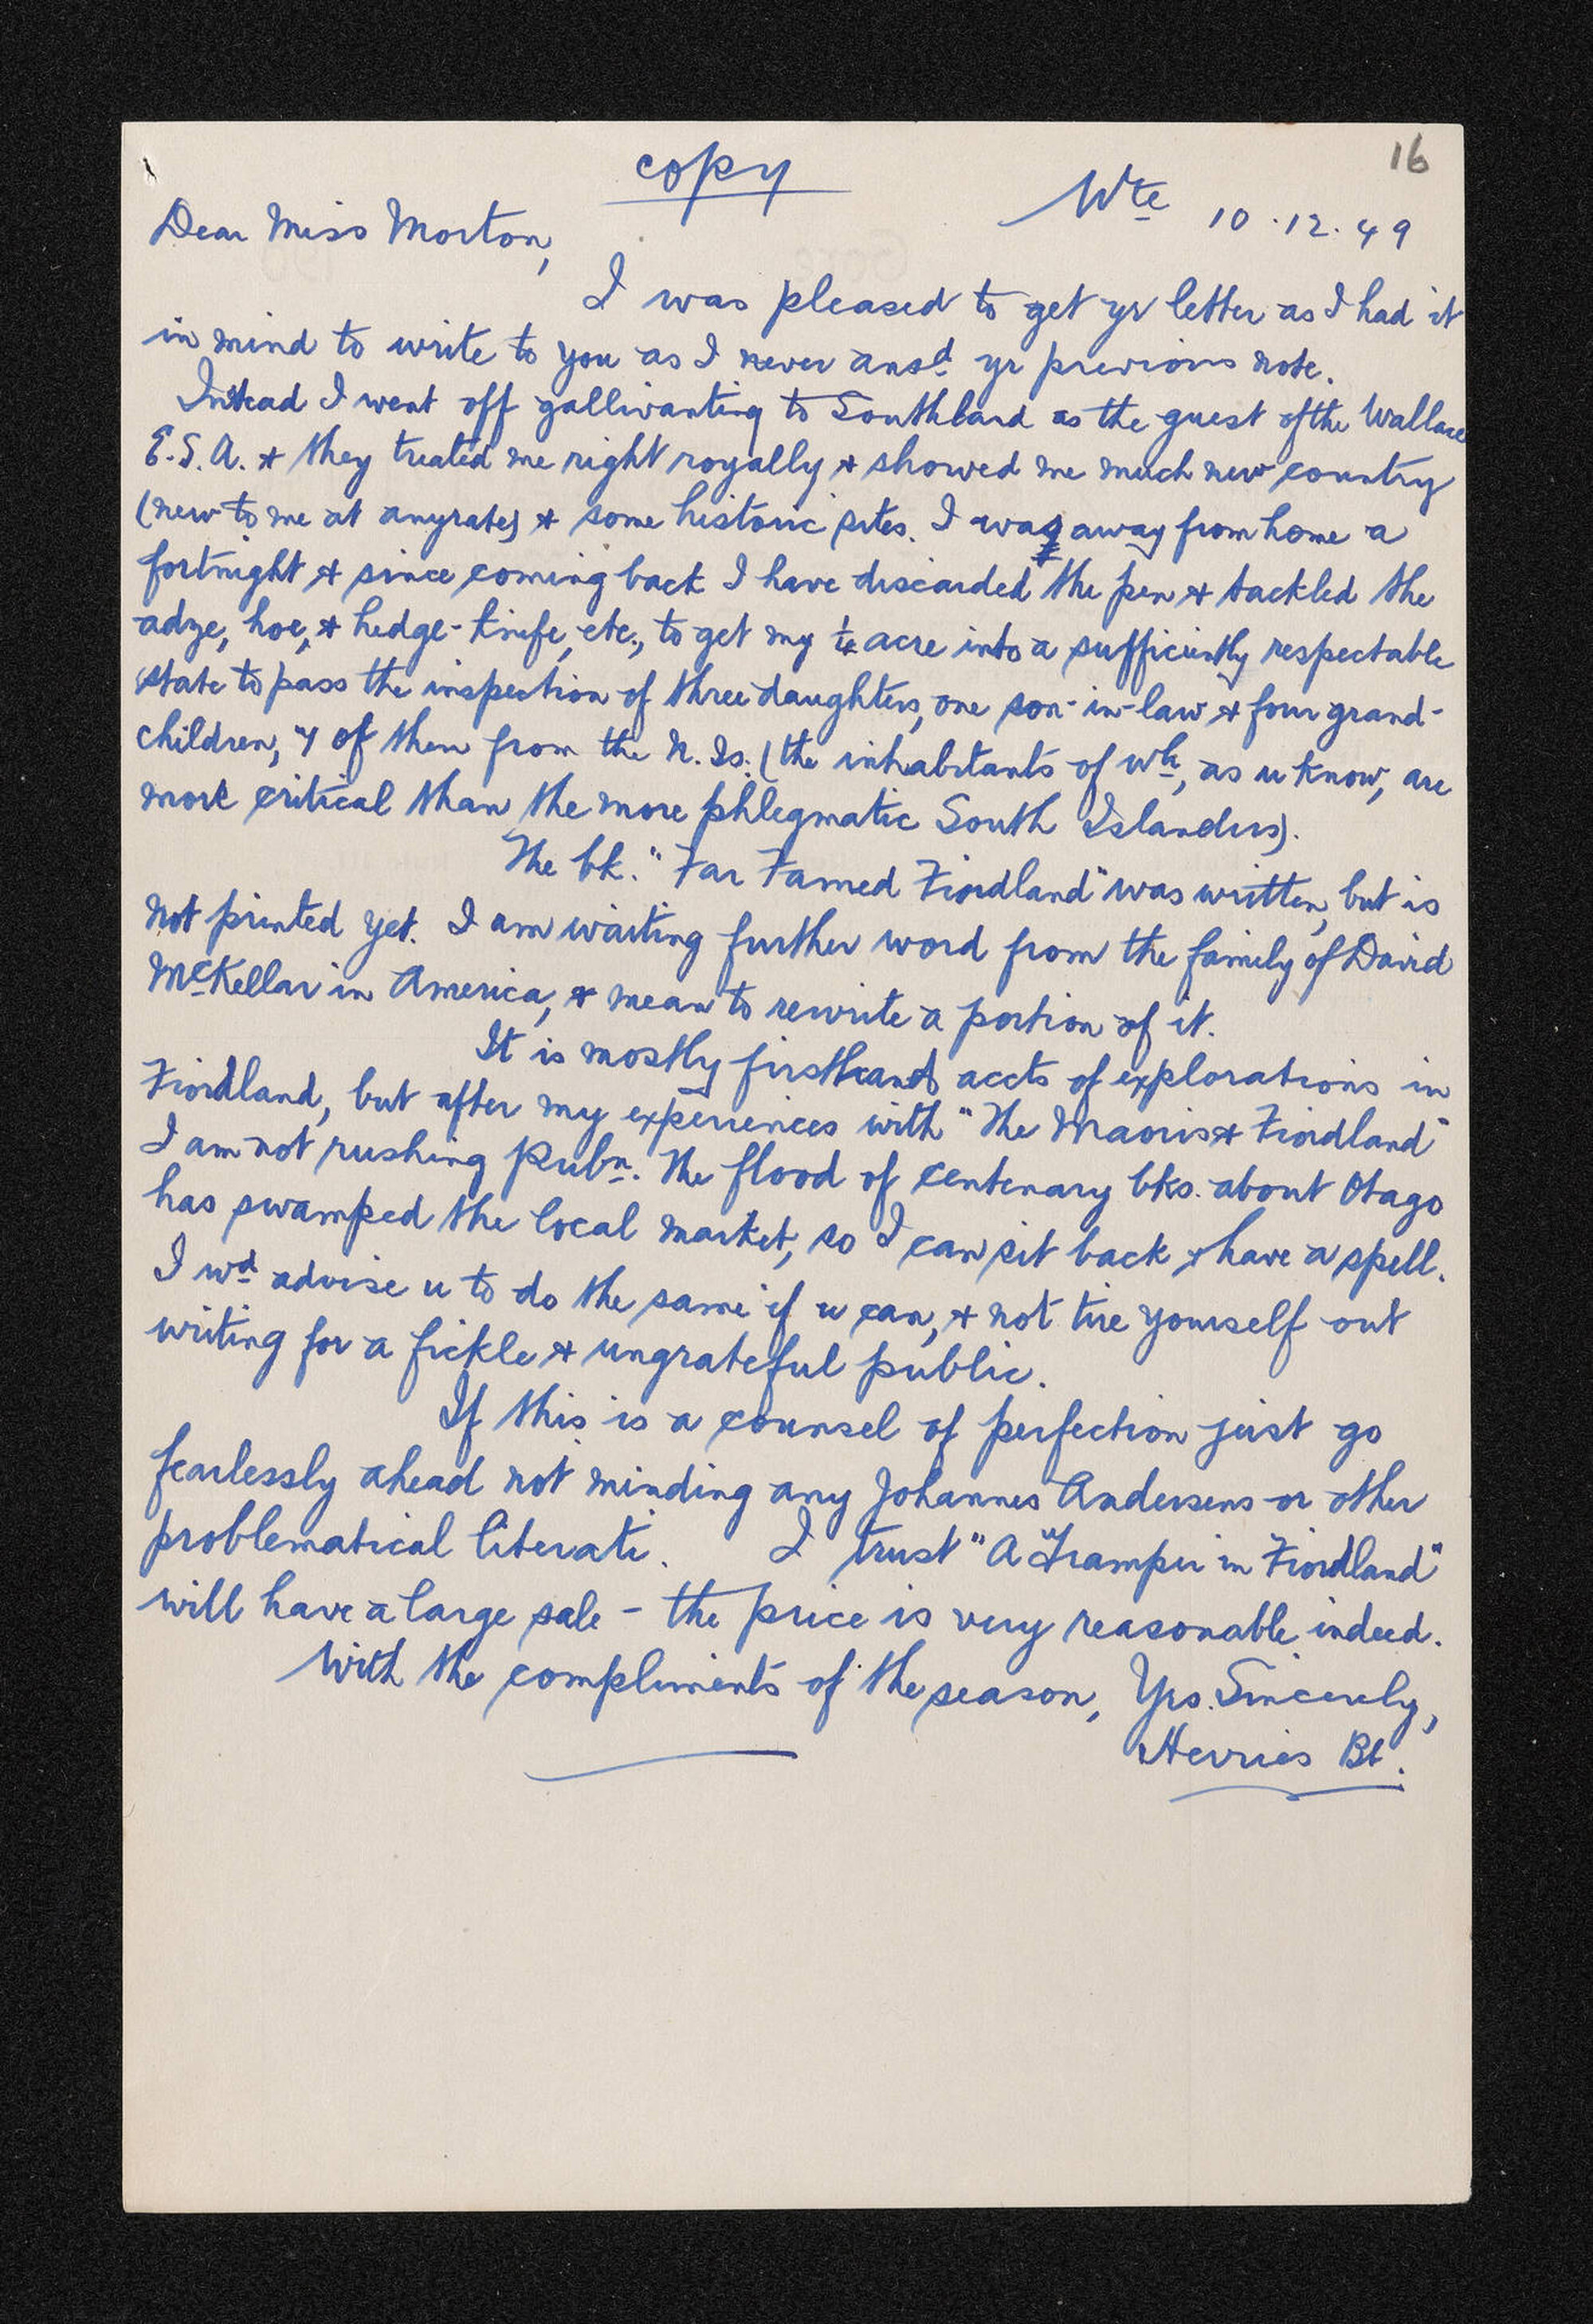 16
copy
Wte 10.12.49
Dear Miss Morton,
I was pleased to get yr letter as I had it
in mind to write to you as I never ansd yr previous note.
Instead I went off gallivanting to Southland as the guest of the Wallace
E.S.A. & they treated me right royally & showed me much new country
(new to me at anyrate) & some historic sites. I was away from home a
fortnight & since coming back I have discarded the pen & tackled the
adze, hoe, & hedge-knife, etc., to get my ¼ acre into a sufficiently respectable
state to pass the inspection of three daughters, one son-in-law & four grand-
children, 4 of them from the N. Is. (the inhabitants of wh, as u know, are
more critical than the more phlegmatic South Islanders).
The bk. "Far Famed Fiordland" was written, but is
not printed yet. I am waiting further word from the family of David
McKellar in America, & mean to rewrite a portion of it.
It is mostly firsthand accts of explorations in
Fiordland, but after my experiences with "The Maoris & Fiordland"
I am not rushing pubn. The flood of centenary bks. about Otago
has swamped the local market, so I can sit back & have a spell.
I wd advise u to do the same if u can, & not tire yourself out
writing for a fickle & ungrateful public.
If this is a counsel of perfection just go
fearlessly ahead not minding any Johannes Andersens or other
problematical literati. I trust "A Tramper in Fiordland"
will have a large sale - the price is very reasonable indeed.
With the compliments of the season, Yrs. Sincerely,
Herries Bt.